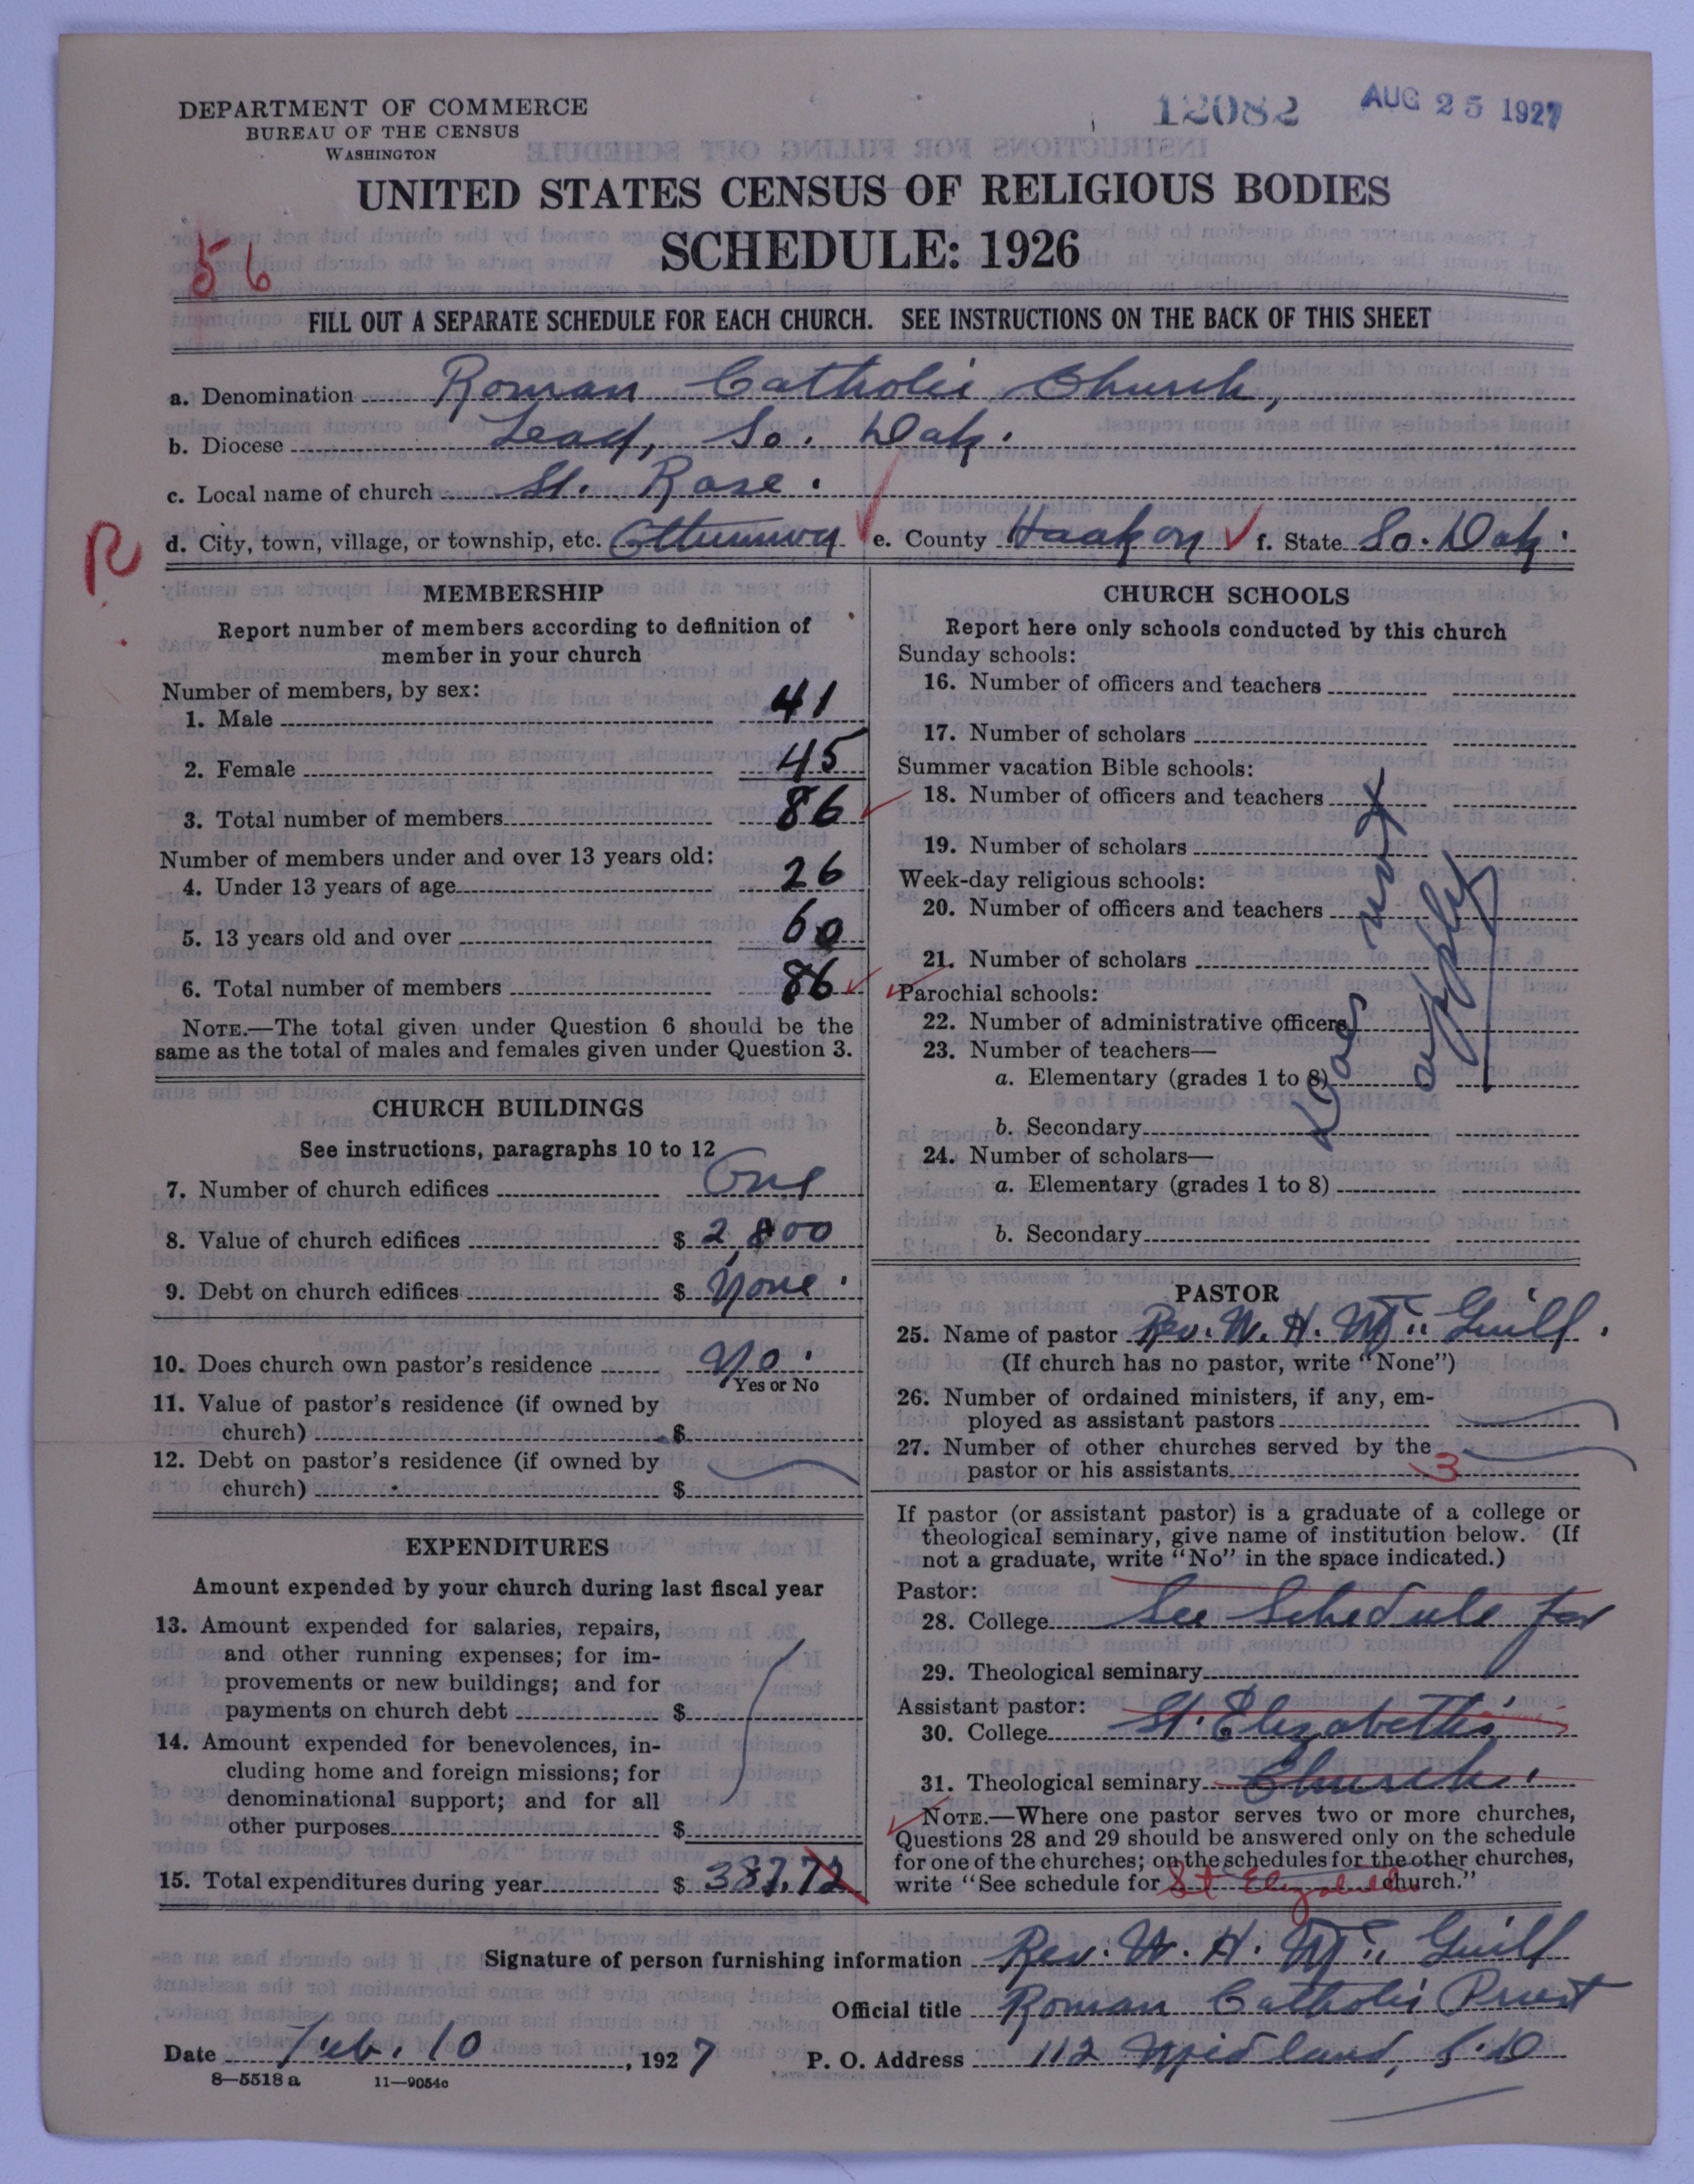 DEPARTMENT OF COMMERCE
BUREAU OF THE CENSUS
WASHINGTON
12082
AUG 25 1927
UNITED STATES CENSUS OF RELIGIOUS BODIES
SCHEDULE: 1926
56
FILL OUT A SEPARATE SCHEDULE FOR EACH CHURCH. SEE INSTRUCTIONS ON THE BACK OF THIS SHEET
a. Denomination Roman Catholic Church,
b. Diocese Lead, So. Dak.
c. Local name of church St. Rose.
R d. City, town, village, or township, etc. Ottumwa e. County Haakon f. State So. Dak.
MEMBERSHIP
Report number of members according to definition of
member in your church
Number of members, by sex:
1. Male 41
2. Female 45
3. Total number of members 86
Number of members under and over 13 years old:
4. Under 13 years of age 26
5. 13 years old and over 60
6. Total number of members 86
NOTE.—The total given under Question 6 should be the
same as the total of males and females given under Question 3.
CHURCH BUILDINGS
See instructions, paragraphs 10 to 12
7. Number of church edifices One
8. Value of church edifices $ 2,800
9. Debt on church edifices $ None.
10. Does church own pastor's residence No.
Yes or No
11. Value of pastor's residence (if owned by
church) $
12. Debt on pastor's residence (if owned by
church) $
EXPENDITURES
Amount expended by your church during last fiscal year
13. Amount expended for salaries, repairs,
and other running expenses; for im-
provements or new buildings; and for
payments on church debt $
14. Amount expended for benevolences, in-
cluding home and foreign missions; for
denominational support; and for all
other purposes $
15. Total expenditures during year $ 387.72
CHURCH SCHOOLS
Report here only schools conducted by this church
Sunday schools:
16. Number of officers and teachers
17. Number of scholars
Summer vacation Bible schools:
18. Number of officers and teachers
19. Number of scholars
Week-day religious schools:
20. Number of officers and teachers
21. Number of scholars
Parochial schools:
22. Number of administrative officers
23. Number of teachers—
a. Elementary (grades 1 to 8)
b. Secondary
24. Number of scholars—
a. Elementary (grades 1 to 8)
b. Secondary
Does not
apply
PASTOR
25. Name of pastor Rev. W. H. Mc Guill.
(If church has no pastor, write "None")
26. Number of ordained ministers, if any, em-
ployed as assistant pastors
27. Number of other churches served by the
pastor or his assistants 3
If pastor (or assistant pastor) is a graduate of a college or
theological seminary, give name of institution below. (If
not a graduate, write "No" in the space indicated.)
Pastor:
28. College See Schedule for
29. Theological seminary
Assistant pastor:
30. College St. Elizabeth's
31. Theological seminary Church.
NOTE.—Where one pastor serves two or more churches,
Questions 28 and 29 should be answered only on the schedule
for one of the churches; on the schedules for the other churches,
write "See schedule for St Elizabeths church."
Signature of person furnishing information Rev. W. H. Mc Guill
Official title Roman Catholic Priest
Date Feb. 10, 1927 P. O. Address 112 Midland, S.D
8—5518 a 11—9054c